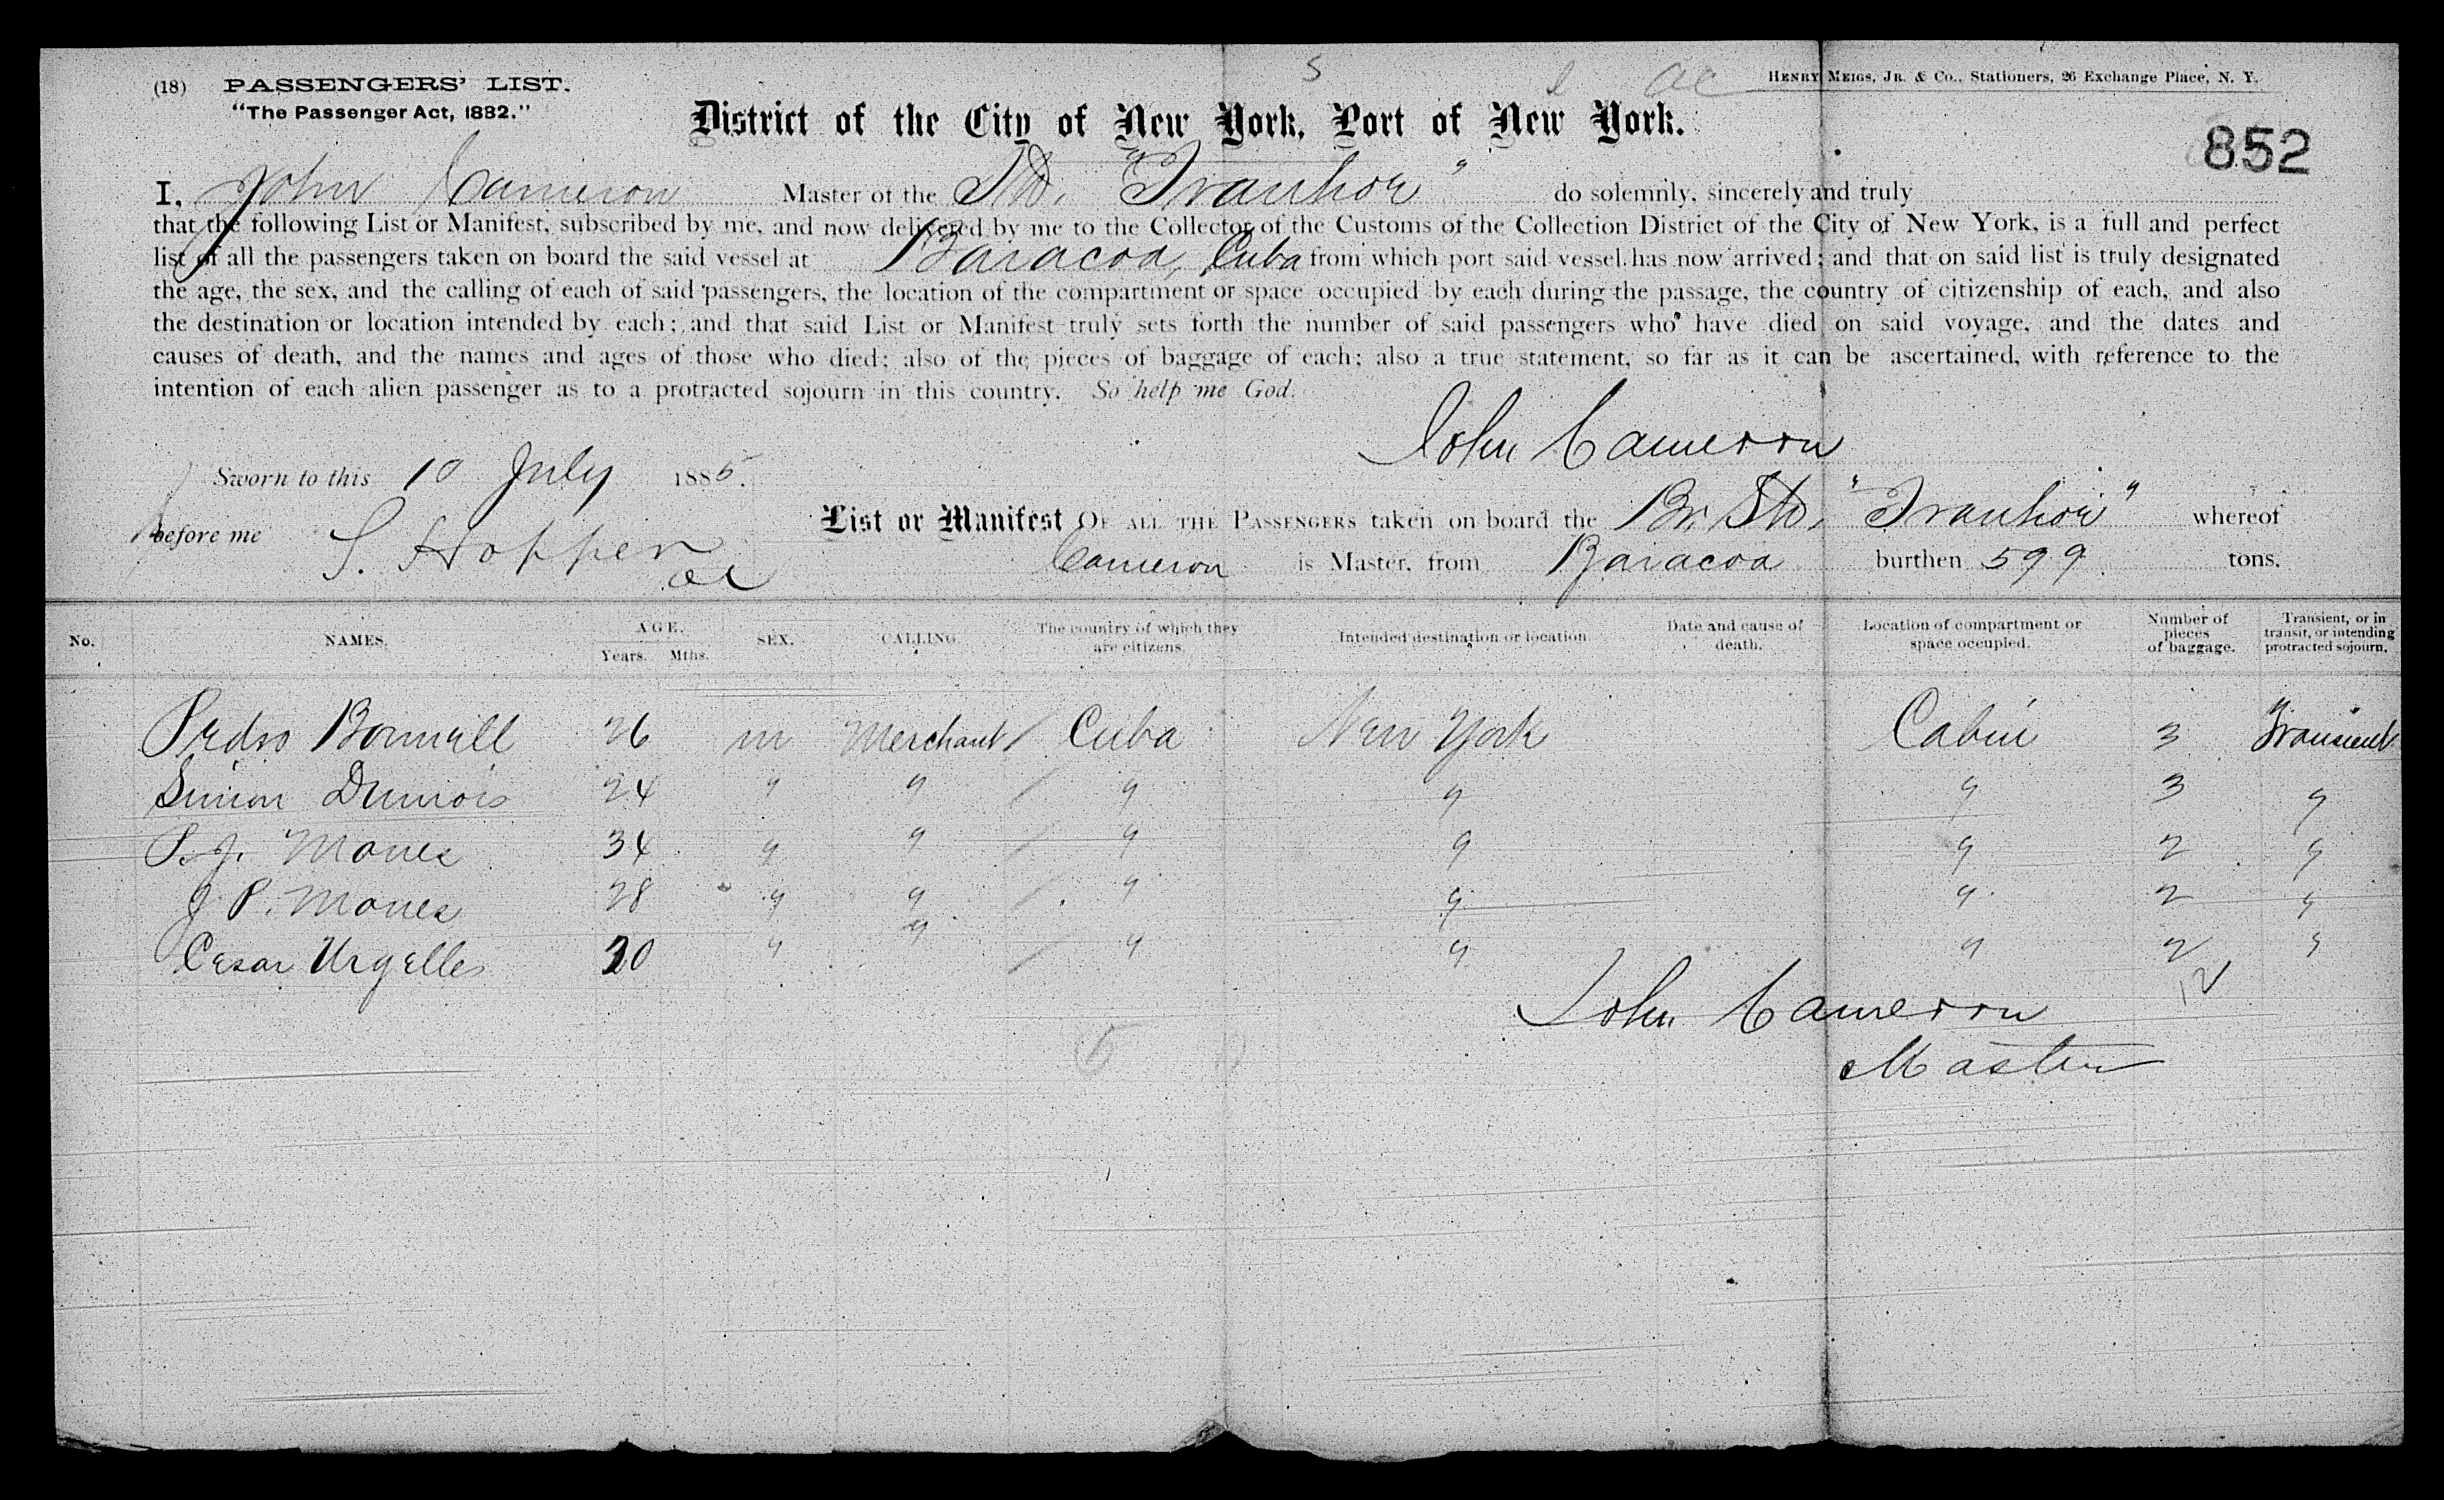 (18) PASSENGERS' LIST.
"The Passenger Act, 1882."
HENRY MEIGS, JR. & Co., Stationers, 26 Exchange Place, N. Y.
District of the City of New York, Port of New York.
852
I, John Cameron Master of the Str. "Ivanhoe" do solemnly, sincerely and truly
that the following List or Manifest, subscribed by me, and now delivered by me to the Collector of the Customs of the Collection District of the City of New York, is a full and perfect
list of all the passengers taken on board the said vessel at Baracoa, Cuba from which port said vessel has now arrived; and that on said list is truly designated
the age, the sex, and the calling of each of said passengers, the location of the compartment or space occupied by each during the passage, the country of citizenship of each, and also
the destination or location intended by each; and that said List or Manifest truly sets forth the number of said passengers who have died on said voyage, and the dates and
causes of death, and the names and ages of those who died; also of the pieces of baggage of each; also a true statement, so far as it can be ascertained, with reference to the
intention of each alien passenger as to a protracted sojourn in this country. So help me God.
John Cameron
Sworn to this 10 July 1885.
before me S. Hopper
List or Manifest OF ALL THE PASSENGERS taken on board the Br. Str. "Ivanhoe" whereof
Cameron is Master, from Baracoa burthen 599 tons.
No. NAMES. AGE. Years. Mths. SEX. CALLING. The country of which they are citizens. Intended destination or location. Date and cause of death. Location of compartment or space occupied. Number of pieces of baggage. Transient, or in transit, or intending protracted sojourn.
Pedro 26 m Merchant / Cuba New York Cabin 3 Transient
Simon Dumois 24 " " / " " " 3 "
P. J. Mones 34 " " / " " " 2 "
J. P. Mones 28 " " / " " " 2 "
Cesar Urgelles " " / " " " 2 "
12
John Cameron
Master